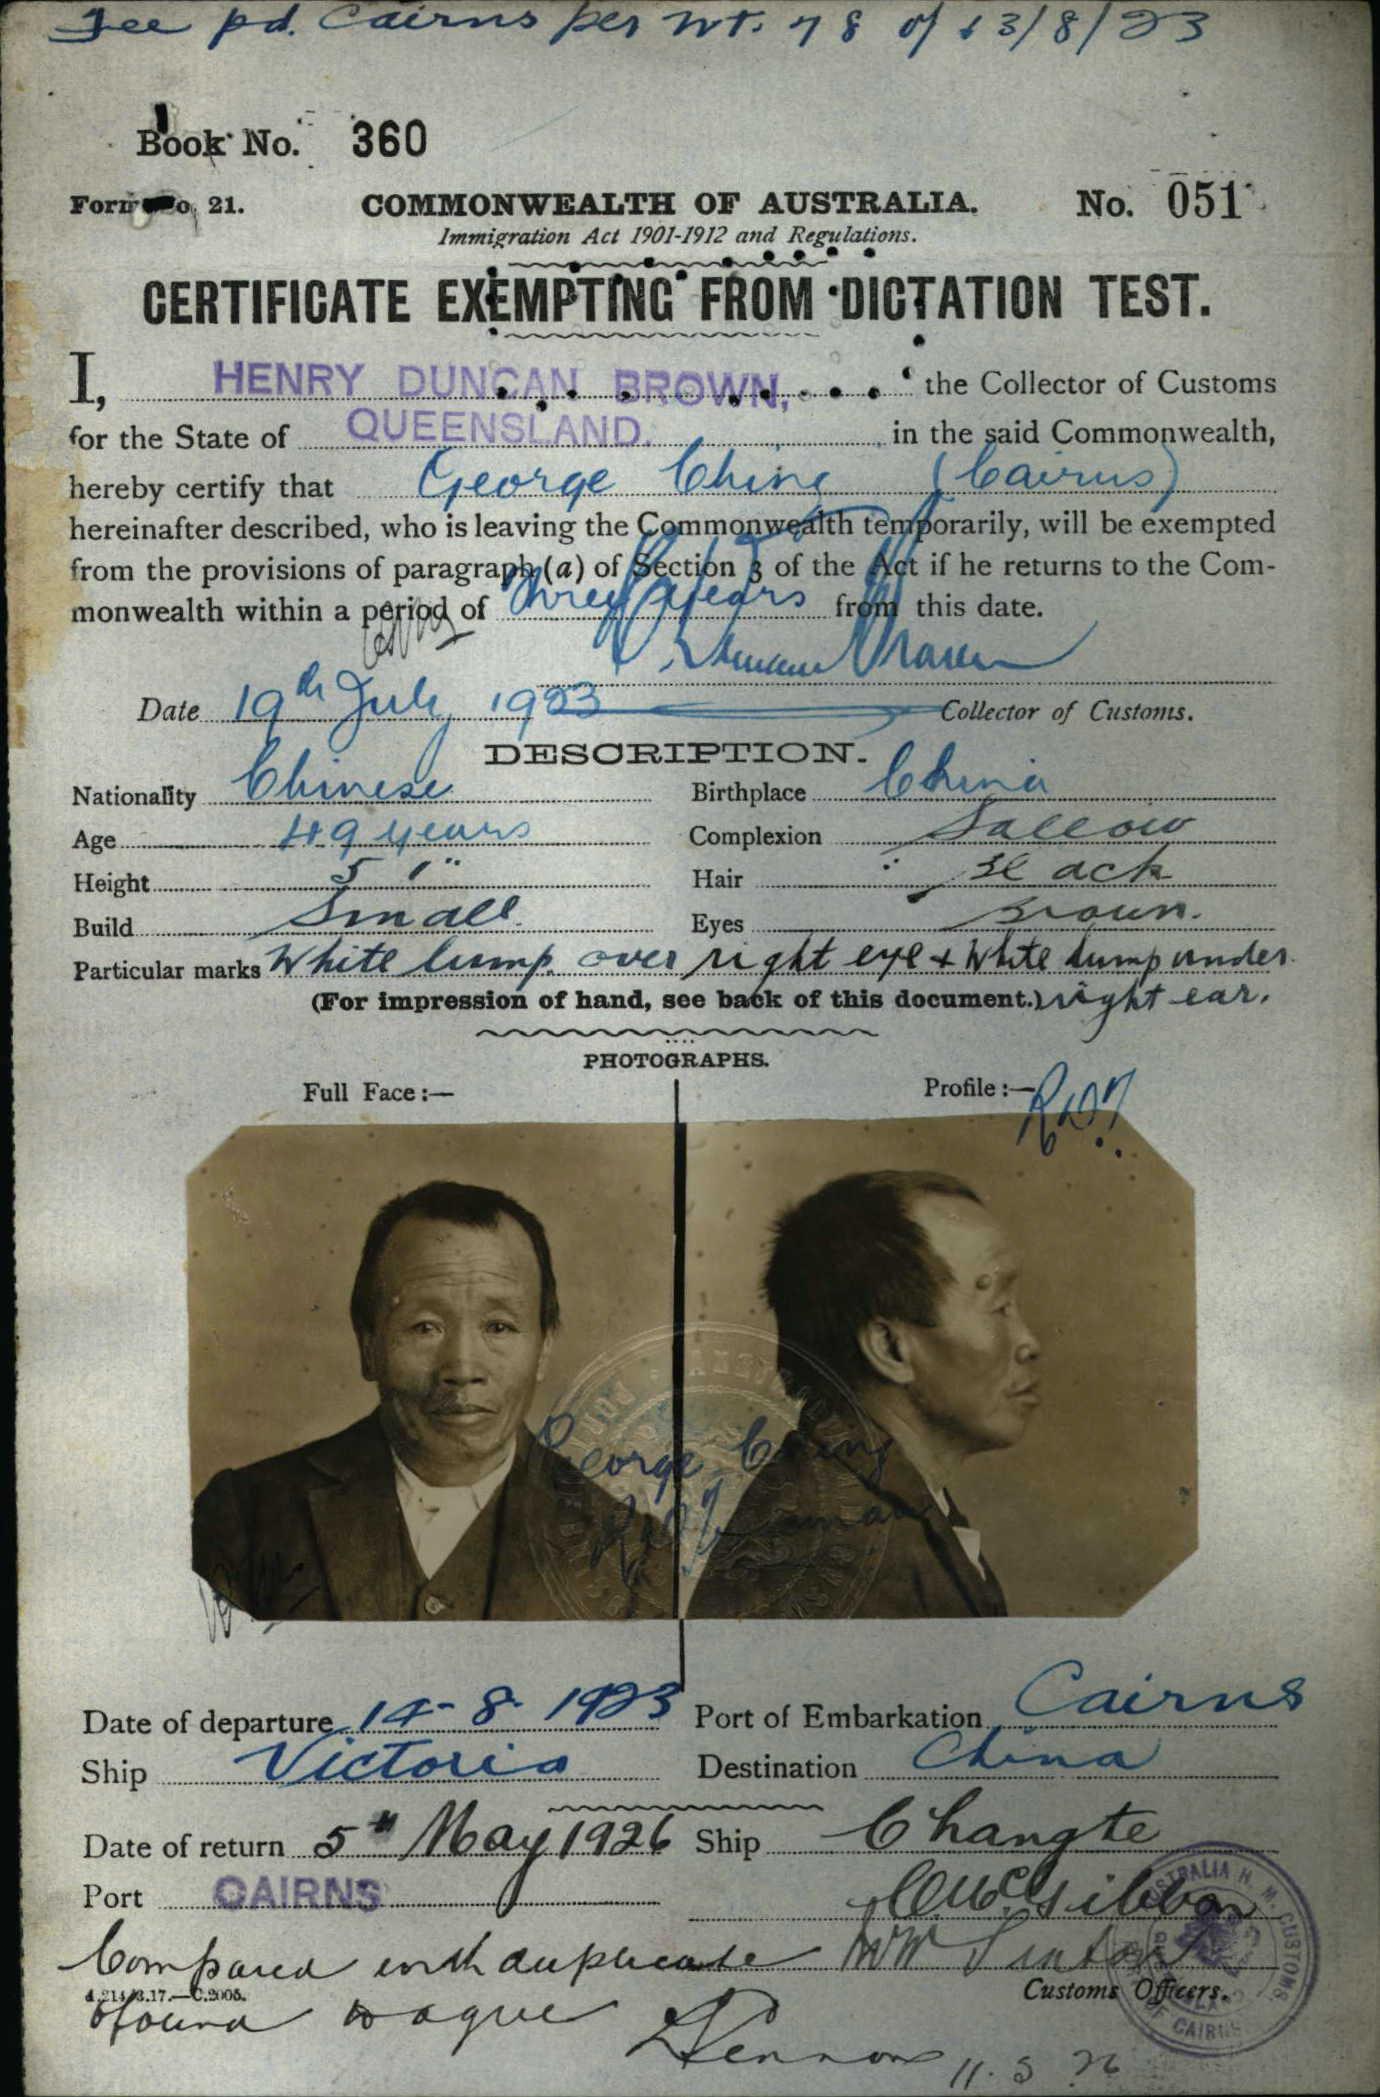 Fee pd. Cairns per Wt. 78 of 13/8/23
Book No. 360
Form No. 21. COMMONWEALTH OF AUSTRALIA. No. 051
Immigration Act 1901-1912 and Regulations.
CERTIFICATE EXEMPTING FROM DICTATION TEST.
I, HENRY DUNCAN BROWN, the Collector of Customs
for the State of QUEENSLAND. in the said Commonwealth,
hereby certify that George Ching (Cairns)
hereinafter described, who is leaving the Commonwealth temporarily, will be exempted
from the provisions of paragraph (a) of Section 3 of the Act if he returns to the Com-
monwealth within a period of Three years from this date.
Date 19th July 1923 Collector of Customs.
DESCRIPTION.
Nationality Chinese Birthplace China
Age 49 years Complexion Sallow
Height 5' 1" Hair Black
Build Small Eyes Brown.
Particular marks White lump over right eye & White lump under
(For impression of hand, see back of this document.) right ear.
PHOTOGRAPHS.
Full Face:— Profile:—
George Ching
Date of departure 14-8-1923 Port of Embarkation Cairns
Ship Victoria Destination China
Date of return 5th May 1926 Ship Changte
Port CAIRNS
Compared with duplicate
Customs Officers.